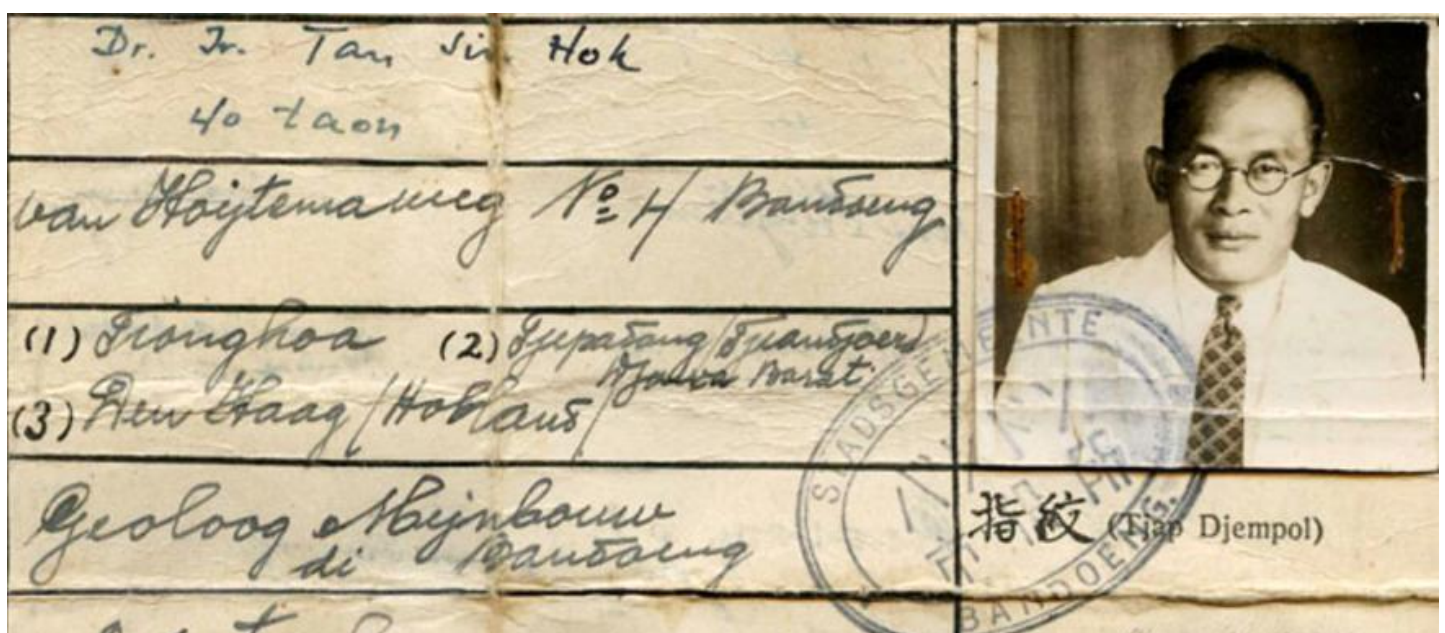 Dr. Ir. Tan Sin Hok
40 taon
van Hoijtemaweg No 4 Bandoeng
(1) Tionghoa (2) Tjepadang/Tjiandjoer/
Djawa Barat
(3) Den Haag/Holland/
Geoloog Mijnbouw
di Bandoeng
STADSGEMEENTE
BANDOENG.
指紋 (Tjap Djempol)